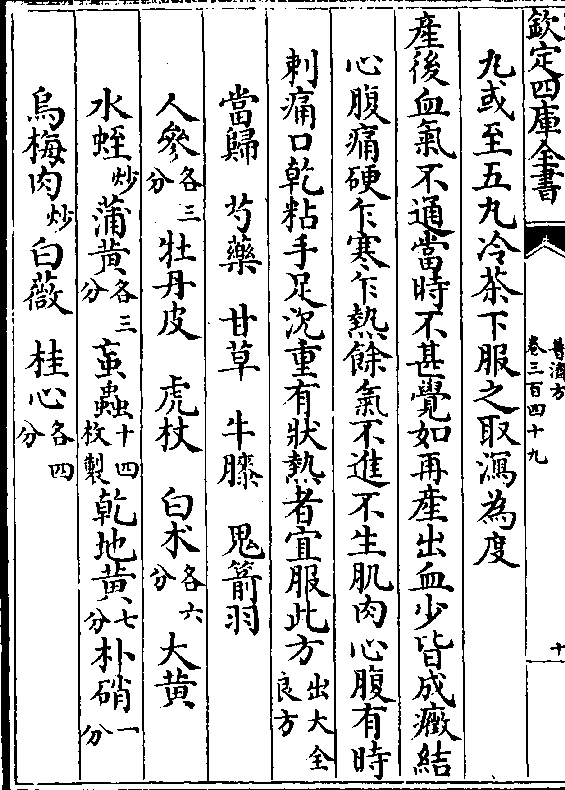 欽定四庫全書
普濟方
卷三百四十九
十
九或至五九冷茶下服之取瀉為度
產後血氣不通當時不甚覺如再產出血少皆成癥結
心腹痛硬乍寒乍熱餘氣不進不生肌肉心腹有時
刺痛口乾粘手足沉重有狀熱者宜服此方出大全良方
當歸 芍藥 甘草 牛膝 鬼箭羽
人參各三分 牡丹皮 虎杖 白朮各六分 大黃
水蛭炒 蒲黃各三分 䖟蟲十四枚製 乾地黃七分 朴硝一分
烏梅肉炒 白薇 桂心各四分